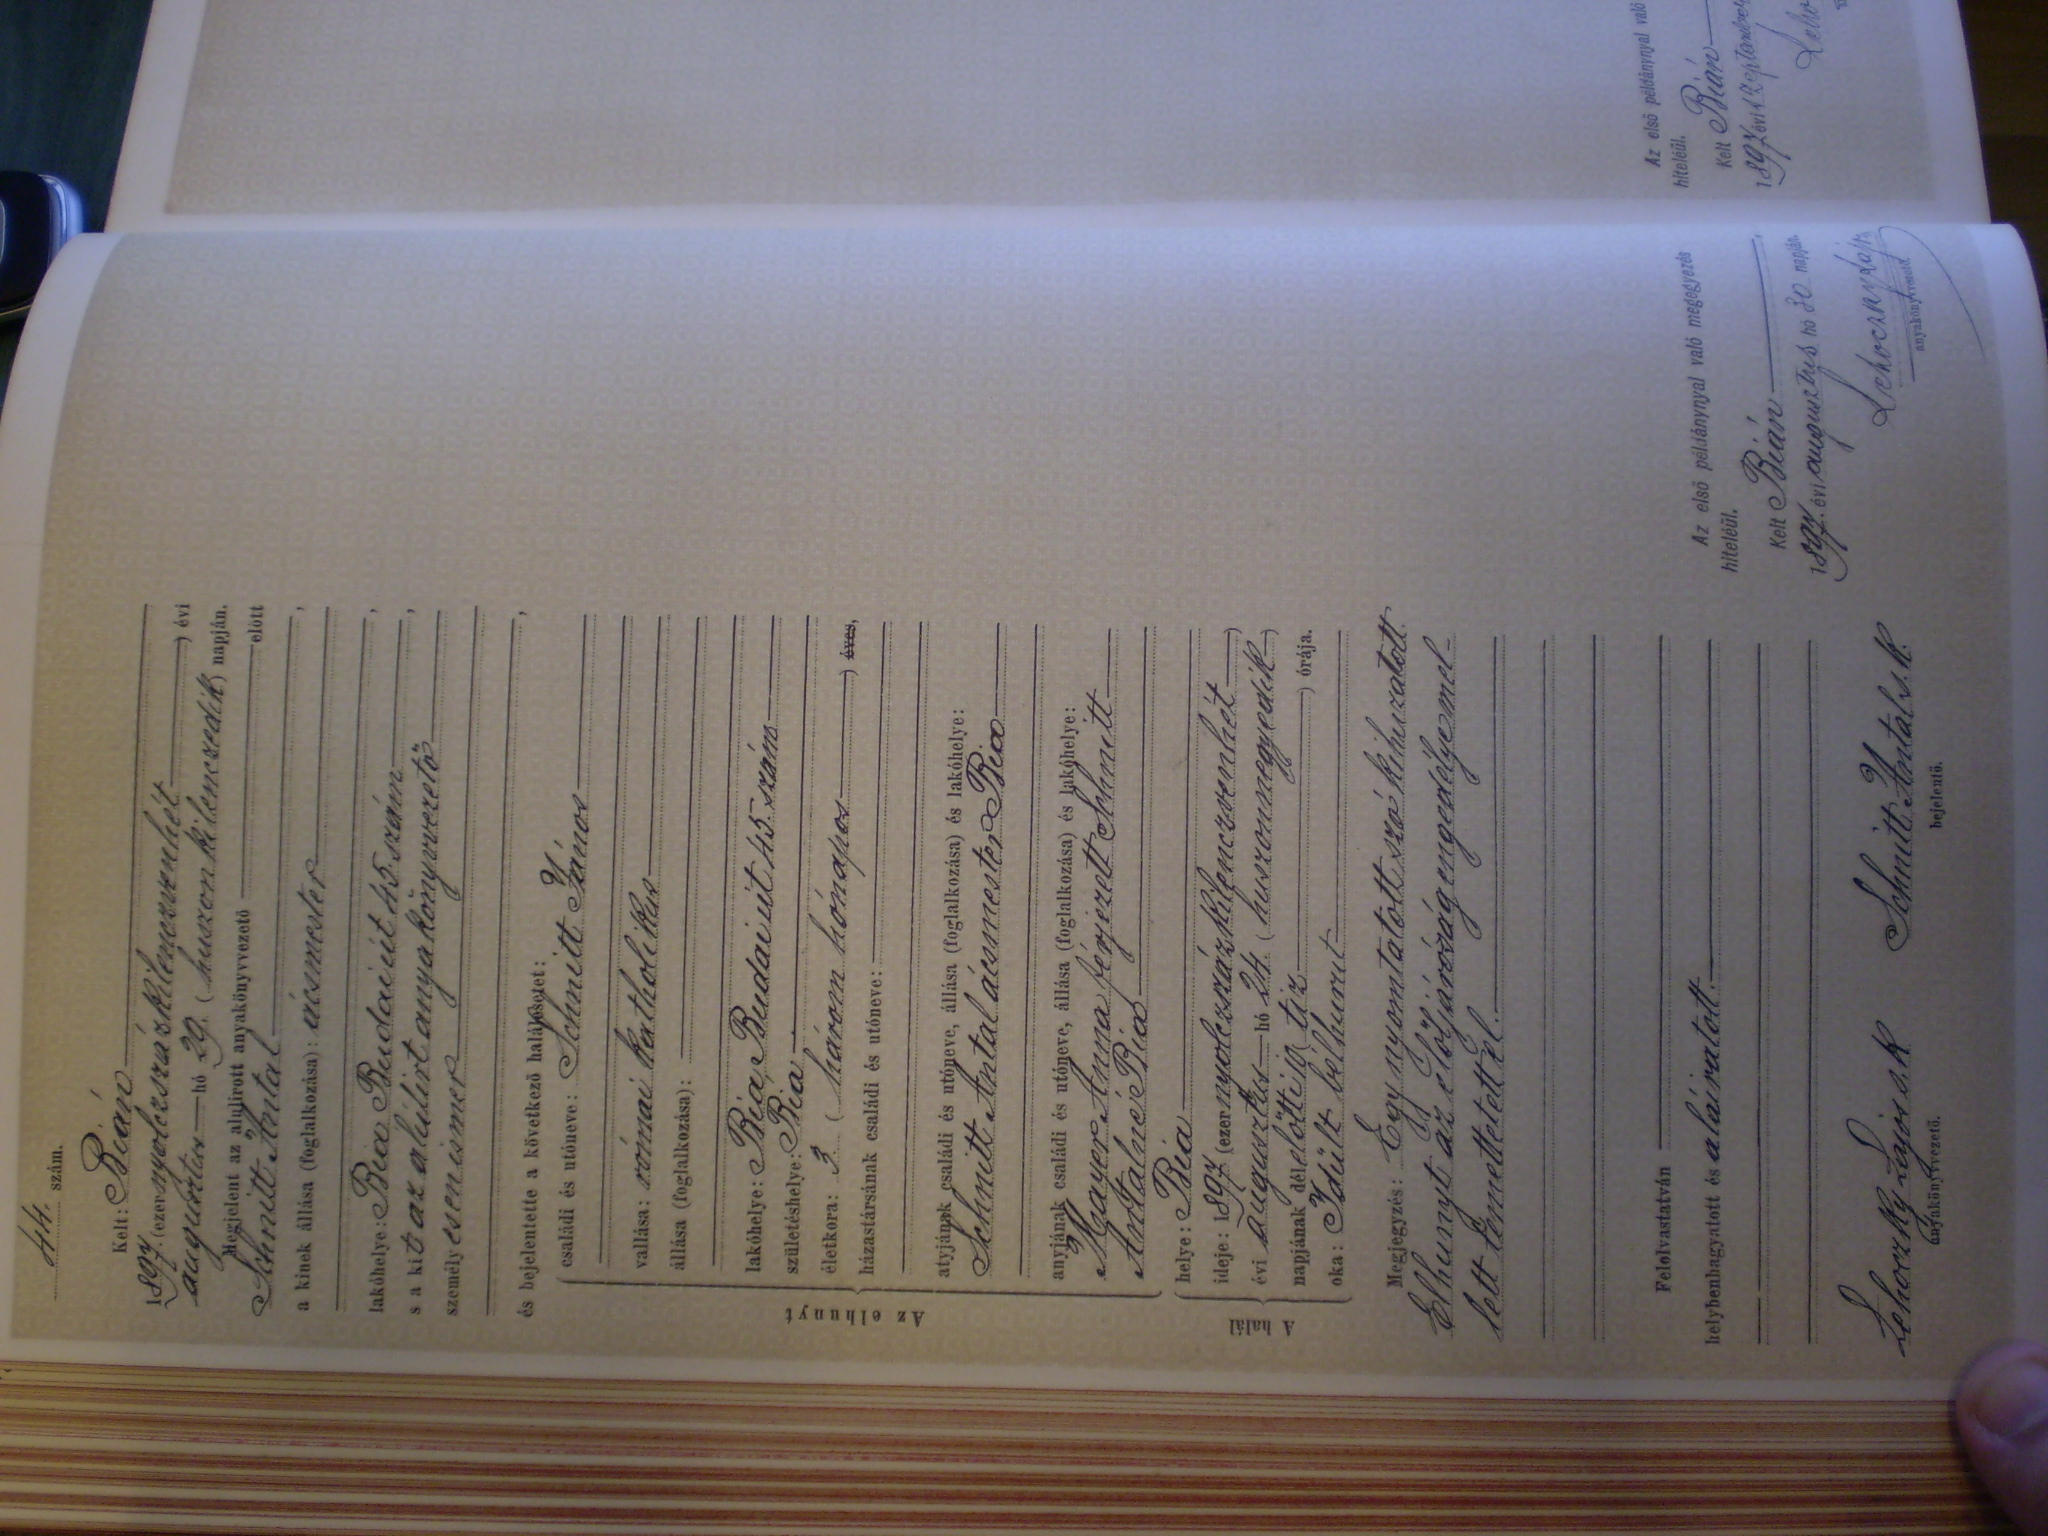 44. szám.
Kelt: Bián
1897. (ezernyolczszázkilenczvenhét) évi
augusztus hó 29. (huszonkilenczedik) napján.
Megjelent az alulirott anyakönyvvezető előtt
Schmitt Antal,
a kinek állása (foglalkozása): ácsmester
lakóhelye: Bia Budai út 45. szám,
s a kit az alulirt anyakönyvvezető,
személyesen ismer
és bejelentette a következő halálesetet:
Az elhunyt
családi és utóneve: Schmitt János
vallása: római katholikus
állása (foglalkozása):
lakóhelye: Bia, Budai út 45. szám
születéshelye: Bia
életkora: 3 (három hónapos) éves,
házastársának családi és utóneve:
atyjának családi és utóneve, állása (foglalkozása) és lakóhelye:
Schmitt Antal ácsmester Bia
anyjának családi és utóneve, állása (foglalkozása) és lakóhelye:
Mayer Anna férjezett Schmitt
Antalné Bia
A halál
helye: Bia
ideje: 1897 (ezernyolczszázkilenczvenhét)
évi augusztus hó 24. (huszonnegyedik)
napjának délelőtti (tiz) órája.
oka: Idült bélhurut
Megjegyzés: Egy nyomtatott szó kihuzatott.
Elhunyt az elöljáróság engedélye mel-
lett temettetett el.
Felolvastatván
helybenhagyatott és aláiratott.
Lehoczky Lajos s. k.
anyakönyvvezető.
Schmitt Antal s. k.
bejelentő.
Az első példánynyal való megegyezés
hiteléül.
Kelt Bián,
1897. évi augusztus hó 30 napján.
Lehoczky Lajos
anyakönyvvezető.
Az első példánynyal való
hiteléül.
Kelt Bián
1897 évi szeptember